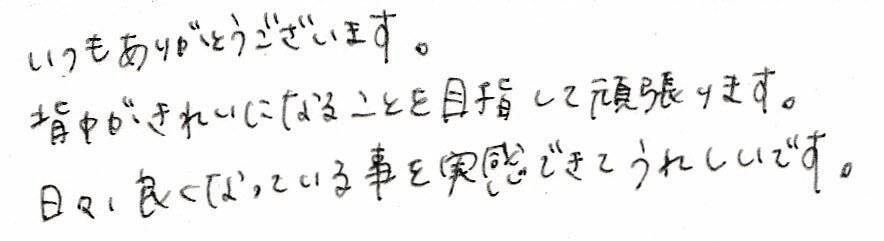 いつもありがとうございます。
背中がきれいになることを目指して頑張ります。
日々、良くなっている事を実感できてうれしいです。